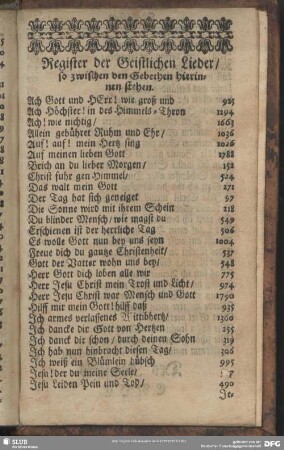 Register der Geistlichen Lieder/
so zwischen den Gebethen hierin-
nen stehen.
Ach Gott und HErr! wie groß und 925
Ach Höchster! in des Himmels-Thron 1294
Ach! wie nichtig/ 1663
Allein gebühret Ruhm und Ehr/ 1036
Auf! auf! mein Hertz sing 1026
Auf meinen lieben Gott 1788
Brich an du lieber Morgen/ 152
Christ fuhr gen Himmel/ 524
Das walt mein Gott 271
Der Tag hat sich geneiget 97
Die Sonne wird mit ihrem Schein 218
Du blinder Mensch/ wie magst du 549
Erschienen ist der herrliche Tag 506
Es wolle Gott nun bey uns seyn 1004
Freue dich du gantze Christenheit/ 537
Gott der Vatter wohn uns bey/ 548
Herr Gott dich loben alle wir 775
Herr Jesu Christ mein Trost und Licht/ 974
Herr Jesu Christ war Mensch und Gott 1790
Hilff mir mein Gott! hilff daß 935
Ich armes verlassenes 1360
Ich dancke dir Gott von Hertzen 195
Ich danck dir schon/ durch deinen Sohn 319
Ich hab nun hinbracht diesen Tag/ 306
Ich weiß ein Blümlein hübsch 995
Jesu! der du meine Seele/
Jesu Leiden Pein und Tod/ 490
Je-